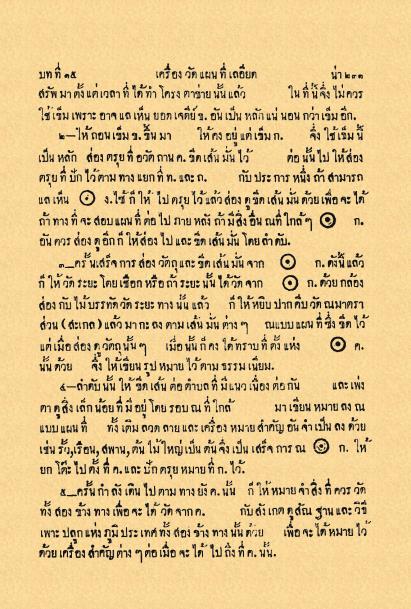 บท ที่ ๑๕ เครื่อง วัด แผน ที่ เลอียด น่า ๒๓๑
สรัพ มา ตั้ง แต่ เวลา ที่ ได้ ทำ โครง ตาข่าย นั้น แล้ว ใน ที่ นี้ จึ่ง ไม่ ควร
ใช้ เข็ม เพราะ อาจ แล เห็น ยอด เจดีย์ ข. อัน เป็น หลัก แน่ นอน กว่า เข็ม อีก.
๒—ให้ ถอน เข็ม ข. ขึ้น มา ให้ คง อยู่ แต่ เข็ม ก. จึ่ง ใช้ เข็ม นี้
เป็น หลัก ส่อง ตรุย ที่ อวัด ถาน ค. ขีด เส้น มั่น ไว้ ต่อ นั้น ไป ให้ ส่อง
ตรุย ที่ ปัก ไว้ ตาม ทาง แยก ที่ ท. และ ถ. กับ ประ การ หนึ่ง ถ้า สามารถ
แล เห็น ⊙ ง. ไซ้ ก็ ให้ ไป ตรุย ไว้ แล้ว ส่อง ดู ขีด เส้น มั่น ด้วย เพื่อ จะ ได้
ถ้า ทาง ที่ จะ สอบ แผน ที่ ต่อ ไป ภาย หลัง ถ้า มี สิ่ง อื่น ณที่ ใกล้ ๆ ⊙ ก.
อัน ควร ส่อง ดู อีก ก็ ให้ ส่อง ไป และ ขีด เส้น มั่น โดย ลำ ดับ.
๓—ครั้น เสร็จ การ ส่อง วัดถุ และ ขีด เส้น มั่น จาก ⊙ ก. ดังนี้ แล้ว
ก็ ให้ วัด ระยะ โดย เชือก หรือ ถ้า ระยะ นั้น ได้ วัด จาก ⊙ ก. ด้วย กล้อง
ส่อง กับ ไม้ บรรทัด วัด ระยะ ทาง นั้น แล้ว ก็ ให้ หยิบ ปาก คีบ วัด ณมาตรา
ส่วน (สะเกล) แล้ว มา กะ ลง ตาม เส้น มั่น ต่าง ๆ ณแบบ แผน ที่ ซึ่ง ขีด ไว้
แต่ เมื่อ ส่อง ดู วัดถุ นั้น ๆ เมื่อ นั้น ก็ คง ได้ ทราบ ที่ ตั้ง แห่ง ⊙ ค.
นั้น ด้วย จึ่ง ให้ เขียน รูป หมาย ไว้ ตาม ธรรม เนียม.
๔—ลำดับ นั้น ให้ ขีด เส้น ต่อ ตำบล ที่ มี แนว เนื่อง ต่อ กัน และ เพ่ง
ตา ดู สิ่ง เล็ก น้อย ที่ มี อยู่ โดย รอบ ณ ที่ ใกล้ มา เขียน หมาย ลง ณ
แบบ แผน ที่ ทั้ง เติม ลวด ลาย และ เครื่อง หมาย สำคัญ อัน จำ เป็น ลง ด้วย
เช่น รั้ว, เรือน, สพาน, ต้น ไม้ ใหญ่ เป็น ต้น จึ่ง เป็น เสร็จ การ ณ ⊙ ก. ให้
ยก โต๊ะ ไป ตั้ง ที่ ค. และ ปัก ตรุย หมาย ที่ ก. ไว้.
๕—ครั้น กำ ลัง เดิน ไป ตาม ทาง ยัง ค. นั้น ก็ ให้ หมาย จำ สิ่ง ที่ ควร วัด
ทั้ง สอง ข้าง ทาง เพื่อ จะ ได้ วัด จาก ค. กับ สัง เกต ดู สัณ ฐาน และ วิธี
เพาะ ปลูก แห่ง ภูมิ ประ เทศ ทั้ง สอง ข้าง ทาง นั้น ด้วย เพื่อ จะ ได้ หมาย ไว้
ด้วย เครื่อง สำคัญ ต่าง ๆ ต่อ เมื่อ จะ ได้ ไป ถึง ที่ ค. นั้น.